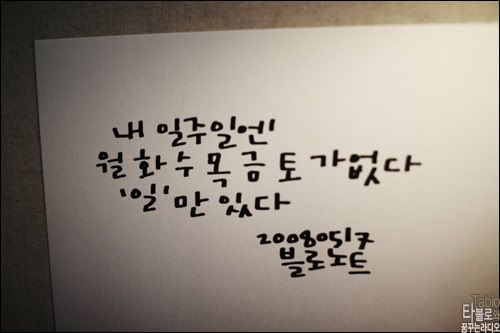 내 일주일엔
월화수목금토가없다
'일'만 있다
20080517
블로노트
Tablo
타블로의
꿈꾸는라디오